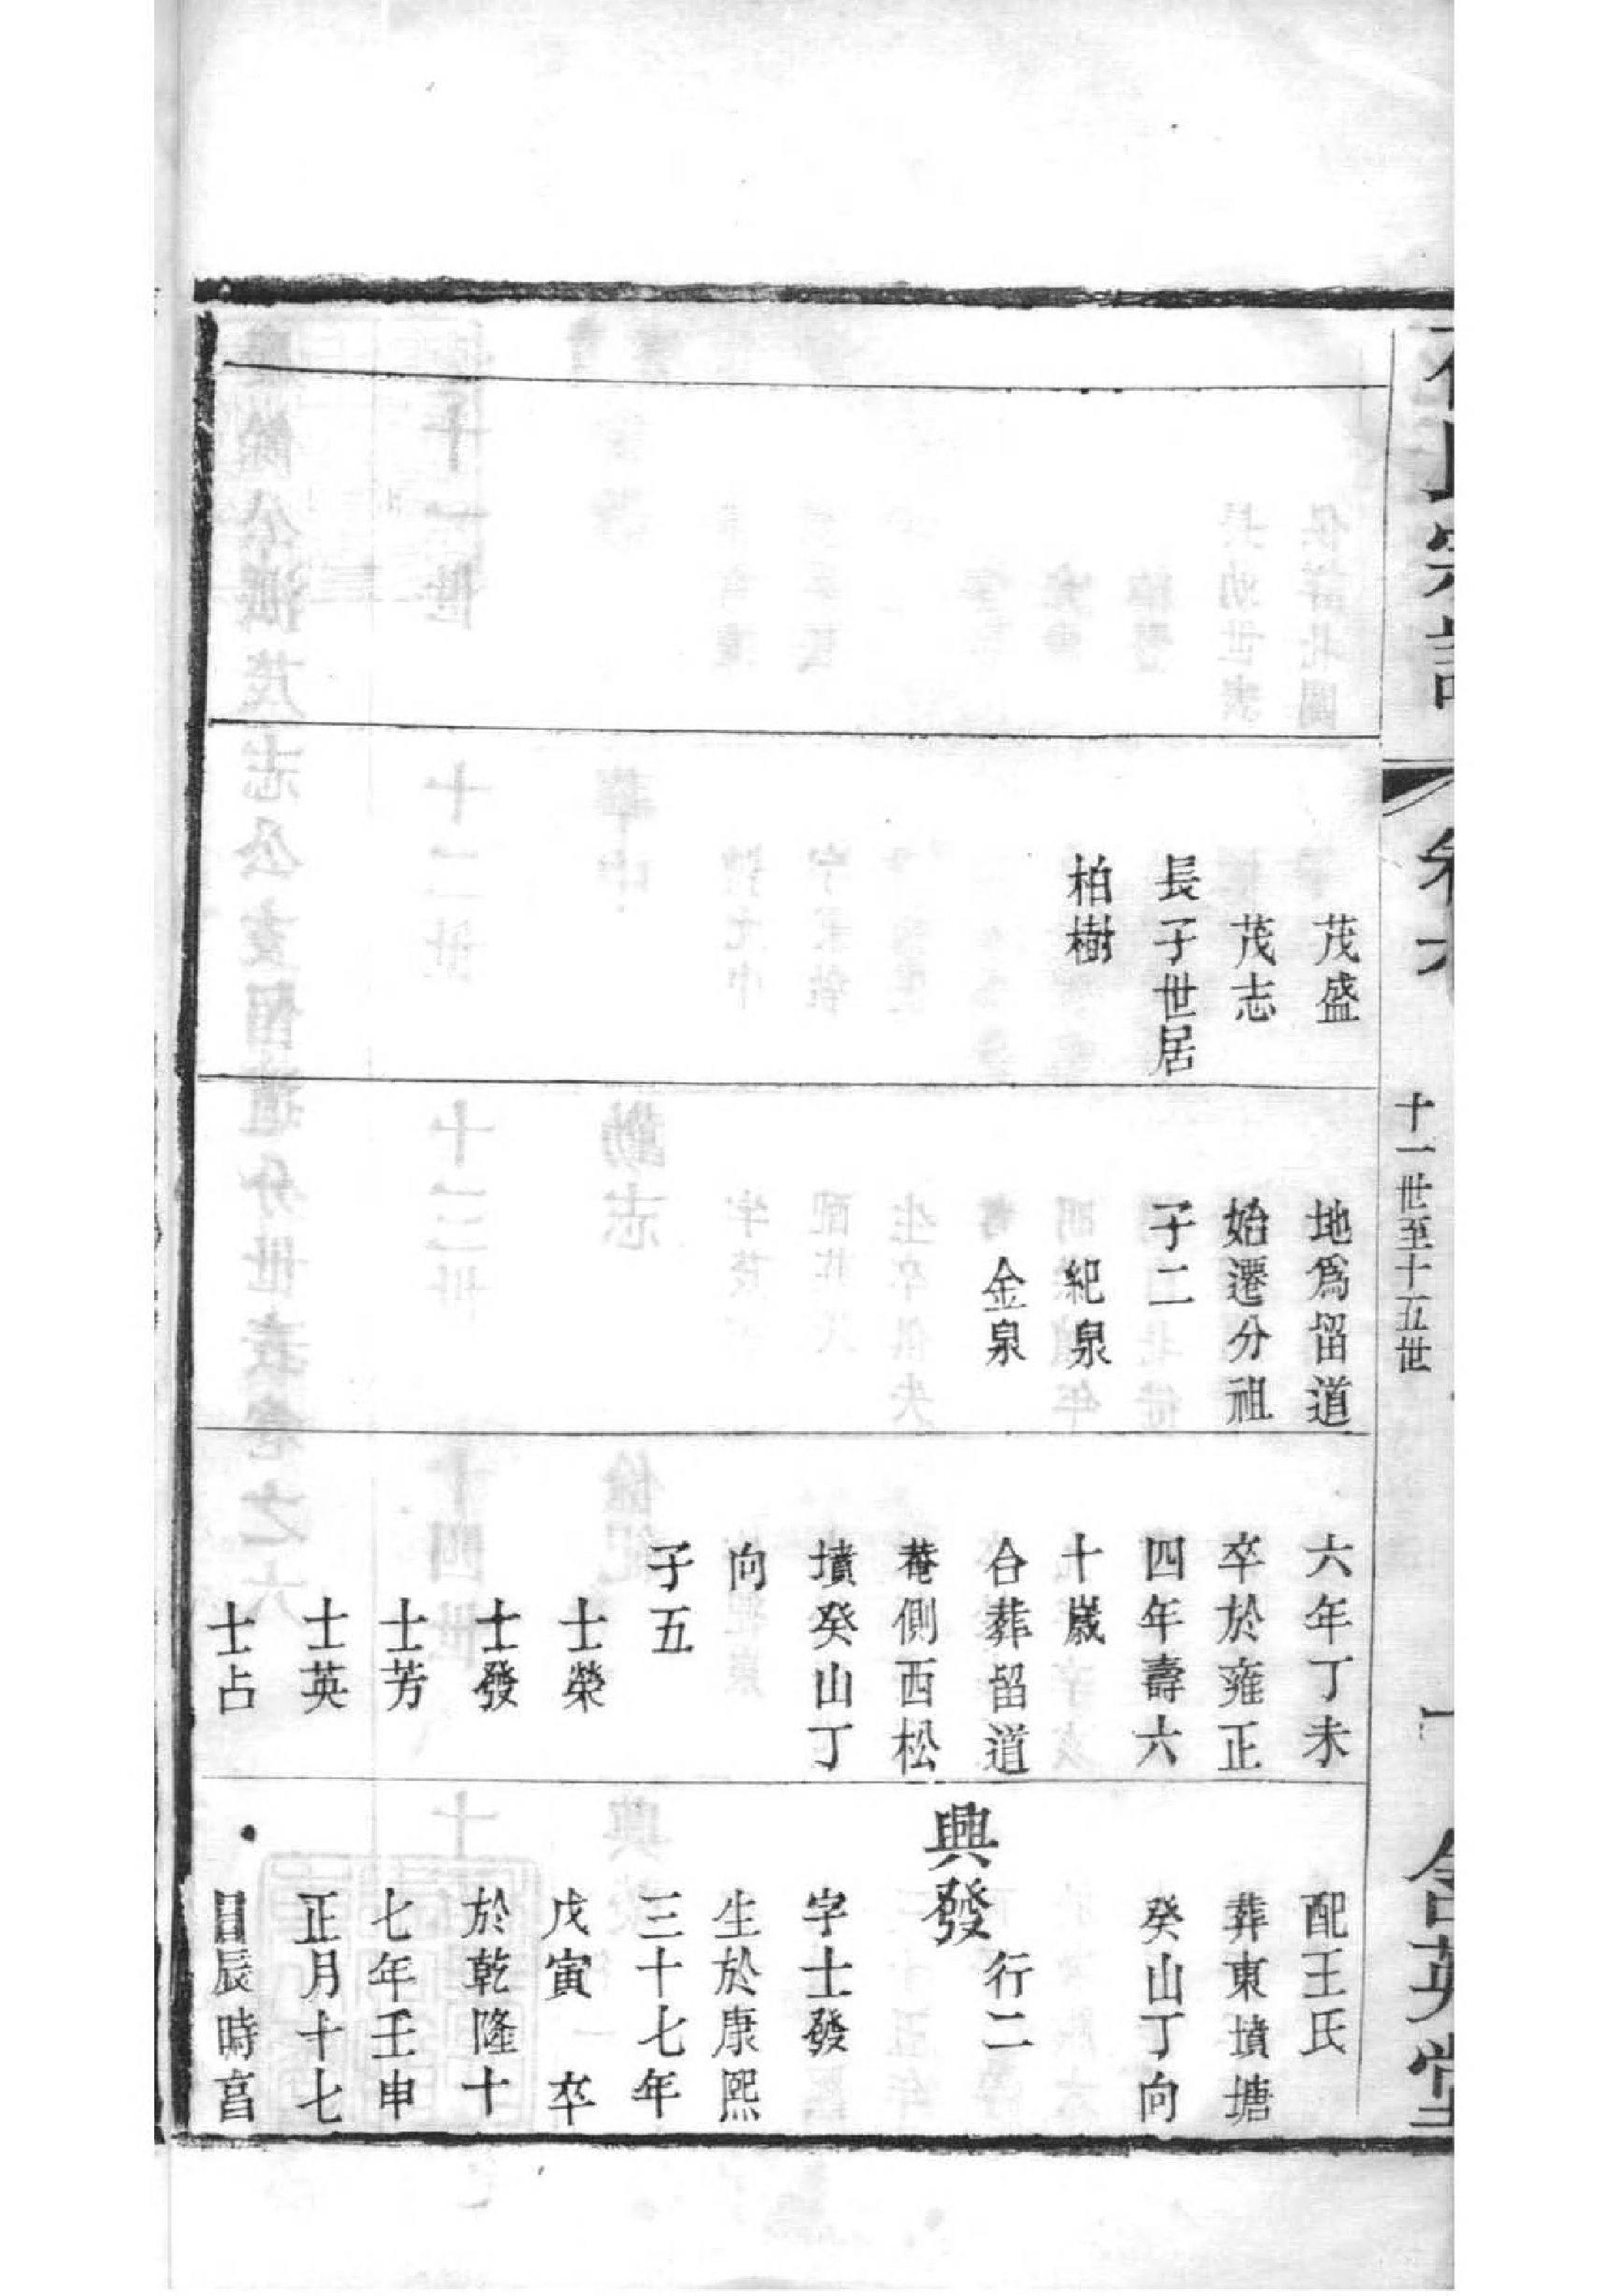 氏宗譜
卷六
十一世至十五世
一
含英堂
茂盛
茂志
長子世居
柏樹
地爲留道
始遷分祖
子二
紀泉
金泉
六年丁未
卒於雍正
四年壽六
十歲
合葬留道
菴側西松
墳癸山丁
向
子五
士榮
士發
士芳
士英
士占
配王氏
葬東墳塘
癸山丁向
興發
行二
字士發
生於康熙
三十七年
戊寅 卒
於乾隆十
七年壬申
正月十七
日辰時